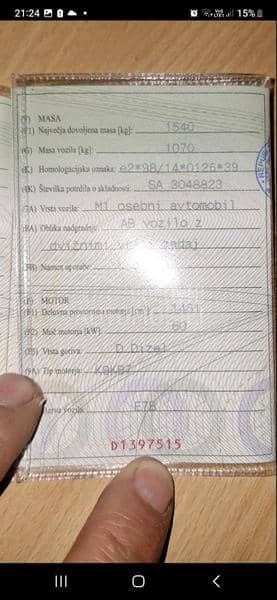 21:24
15%
(9) MASA
(F1) Največja dovoljena masa [kg]: 1540
(G) Masa vozila [kg]: 1070
(K) Homologacijska oznaka: e2*98/14*0126*39
(4K) Številka potrdila o skladnosti: SA 3048823
(7A) Vrsta vozila: M1 osebni avtomobil
(8A) Oblika nadgradnje: AB vozilo z
dvižnimi zadaj
Namen uporabe:
(P) MOTOR
(P1) Delovna prostornina motorja
(P2) Moč motorja [kW]: 60
(P3) Vrsta goriva: D Dizel
Tip motorja: K9K
Barva vozila: E7B
D1397515